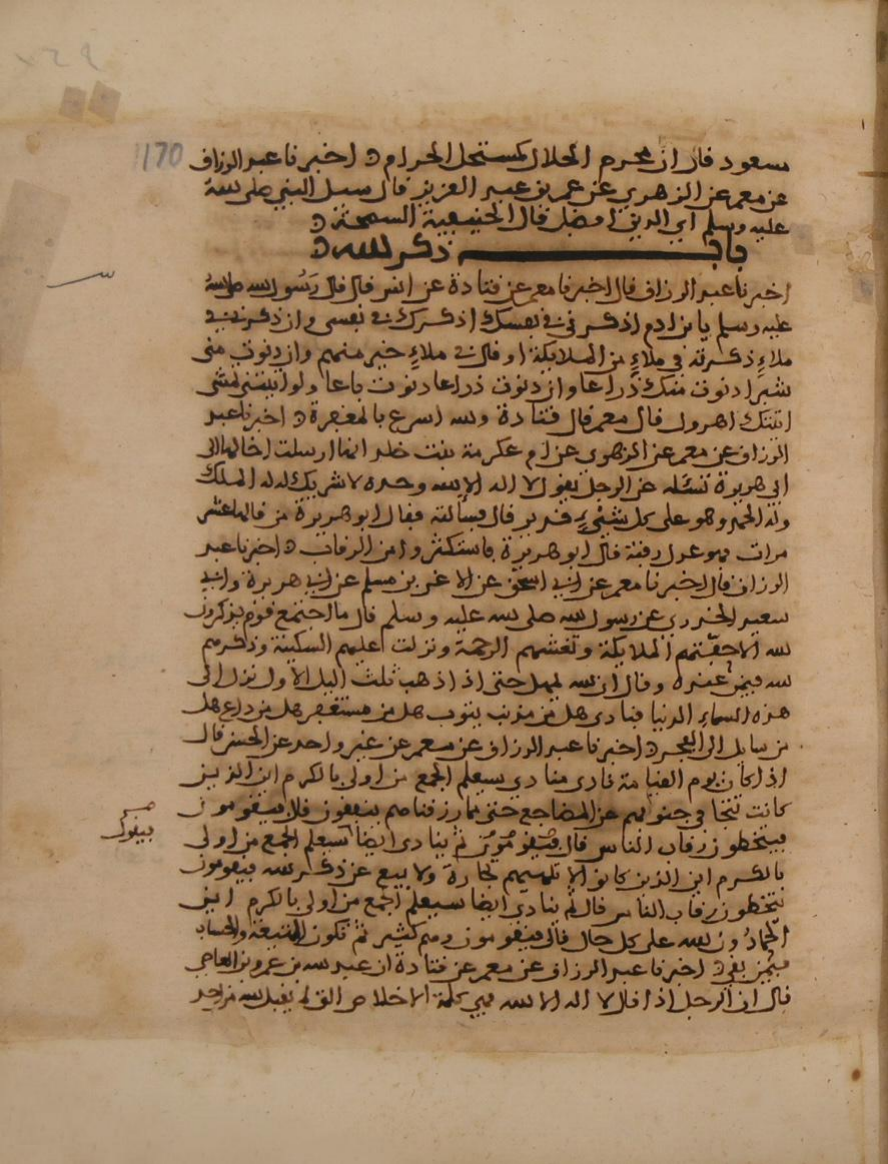 1170
مسعود قال ان محرم الحلال كمستحل الحرام اخبرنا عبد الرزاق
عن معمر عن الزهري عن عمر بن عبد العزيز قال سيل النبي صلى الله
عليه وسلم اي الدين افضل قال الحنيفية السمحة
باب ذكر الله
اخبرنا عبد الرزاق قال اخبرنا معمر عن قتادة عن انس قال قال رسول الله صلى الله
عليه وسلم يا بن ادم اذكرني في نفسك اذكرك في نفسي وان ذكرتني في
ملاءٍ ذكرته في ملاءٍ من الملايكة او قال في ملاءٍ خير منهم وان دنوت مني
شبرا دنوت منك ذراعا وان دنوت ذراعا دنوت باعا ولو اتيتني تمشي
اتيتك اهرول قال معمر قال قتادة والله اسرع بالمغفرة اخبرنا عبد
الرزاق عن معمر عن الزهري عن ام عكرمة بنت خلد انها ارسلت اخالها الى
ابي هريرة تسئله عن الرجل يقول لا اله الا الله وحده لا شريك له له الملك
وله الحمد وهو على كل شيء قدير قال فسألته فقال ابو هريرة من قالها عشر
مرات فهو عدل رقبة قال ابو هريرة فاستكثروا من الرقاب اخبرنا عبد
الرزاق قال اخبرنا معمر عن ابي اسحق عن الاغر بن مسلم عن ابي هريرة وابي
سعيد الخدري عن رسول الله صلى الله عليه وسلم قال ما اجتمع قوم يذكرون
الله الا حفتهم الملايكة وتغشتهم الرحمة ونزلت عليهم السكينة وذكرهم
الله فيمن عنده وقال ان الله يمهل حتى اذا ذهب ثلث اليل الاول نزل الى
هذه السماء الدنيا فنادى هل من مذنب يتوب هل من مستغفر هل من داع هل
من سايل الى الفجر اخبرنا عبد الرزاق عن معمر عن غير واحد عن الحسن قال
اذا كان يوم القيامة نادى منادي سيعلم الجمع من اولى بالكرم اين الذين
كانت تتجافى جنوبهم عن المضاجع حتى مما رزقناهم ينفقون قال فيقومون
فيتخطون رقاب الناس قال فيقومون ثم ينادي ايضا سيعلم الجمع من اولى
بالكرم اين الذين كانوا لا تلهيهم تجارة ولا بيع عن ذكر الله فيقومون
يتخطون رقاب الناس قال ثم ينادي ايضا سيعلم الجمع من اولى بالكرم اين
الحمادون لله على كل حال قال فيقومون وهم كثير ثم تكون التبعة والحساب
فيمن بقي اخبرنا عبد الرزاق عن معمر عن قتادة ان عبد الله بن عمرو بن العاصي
قال ان الرجل اذا قال لا اله الا الله فهي كلمة الاخلاص التي لم يقبل الله من احد
فيقول